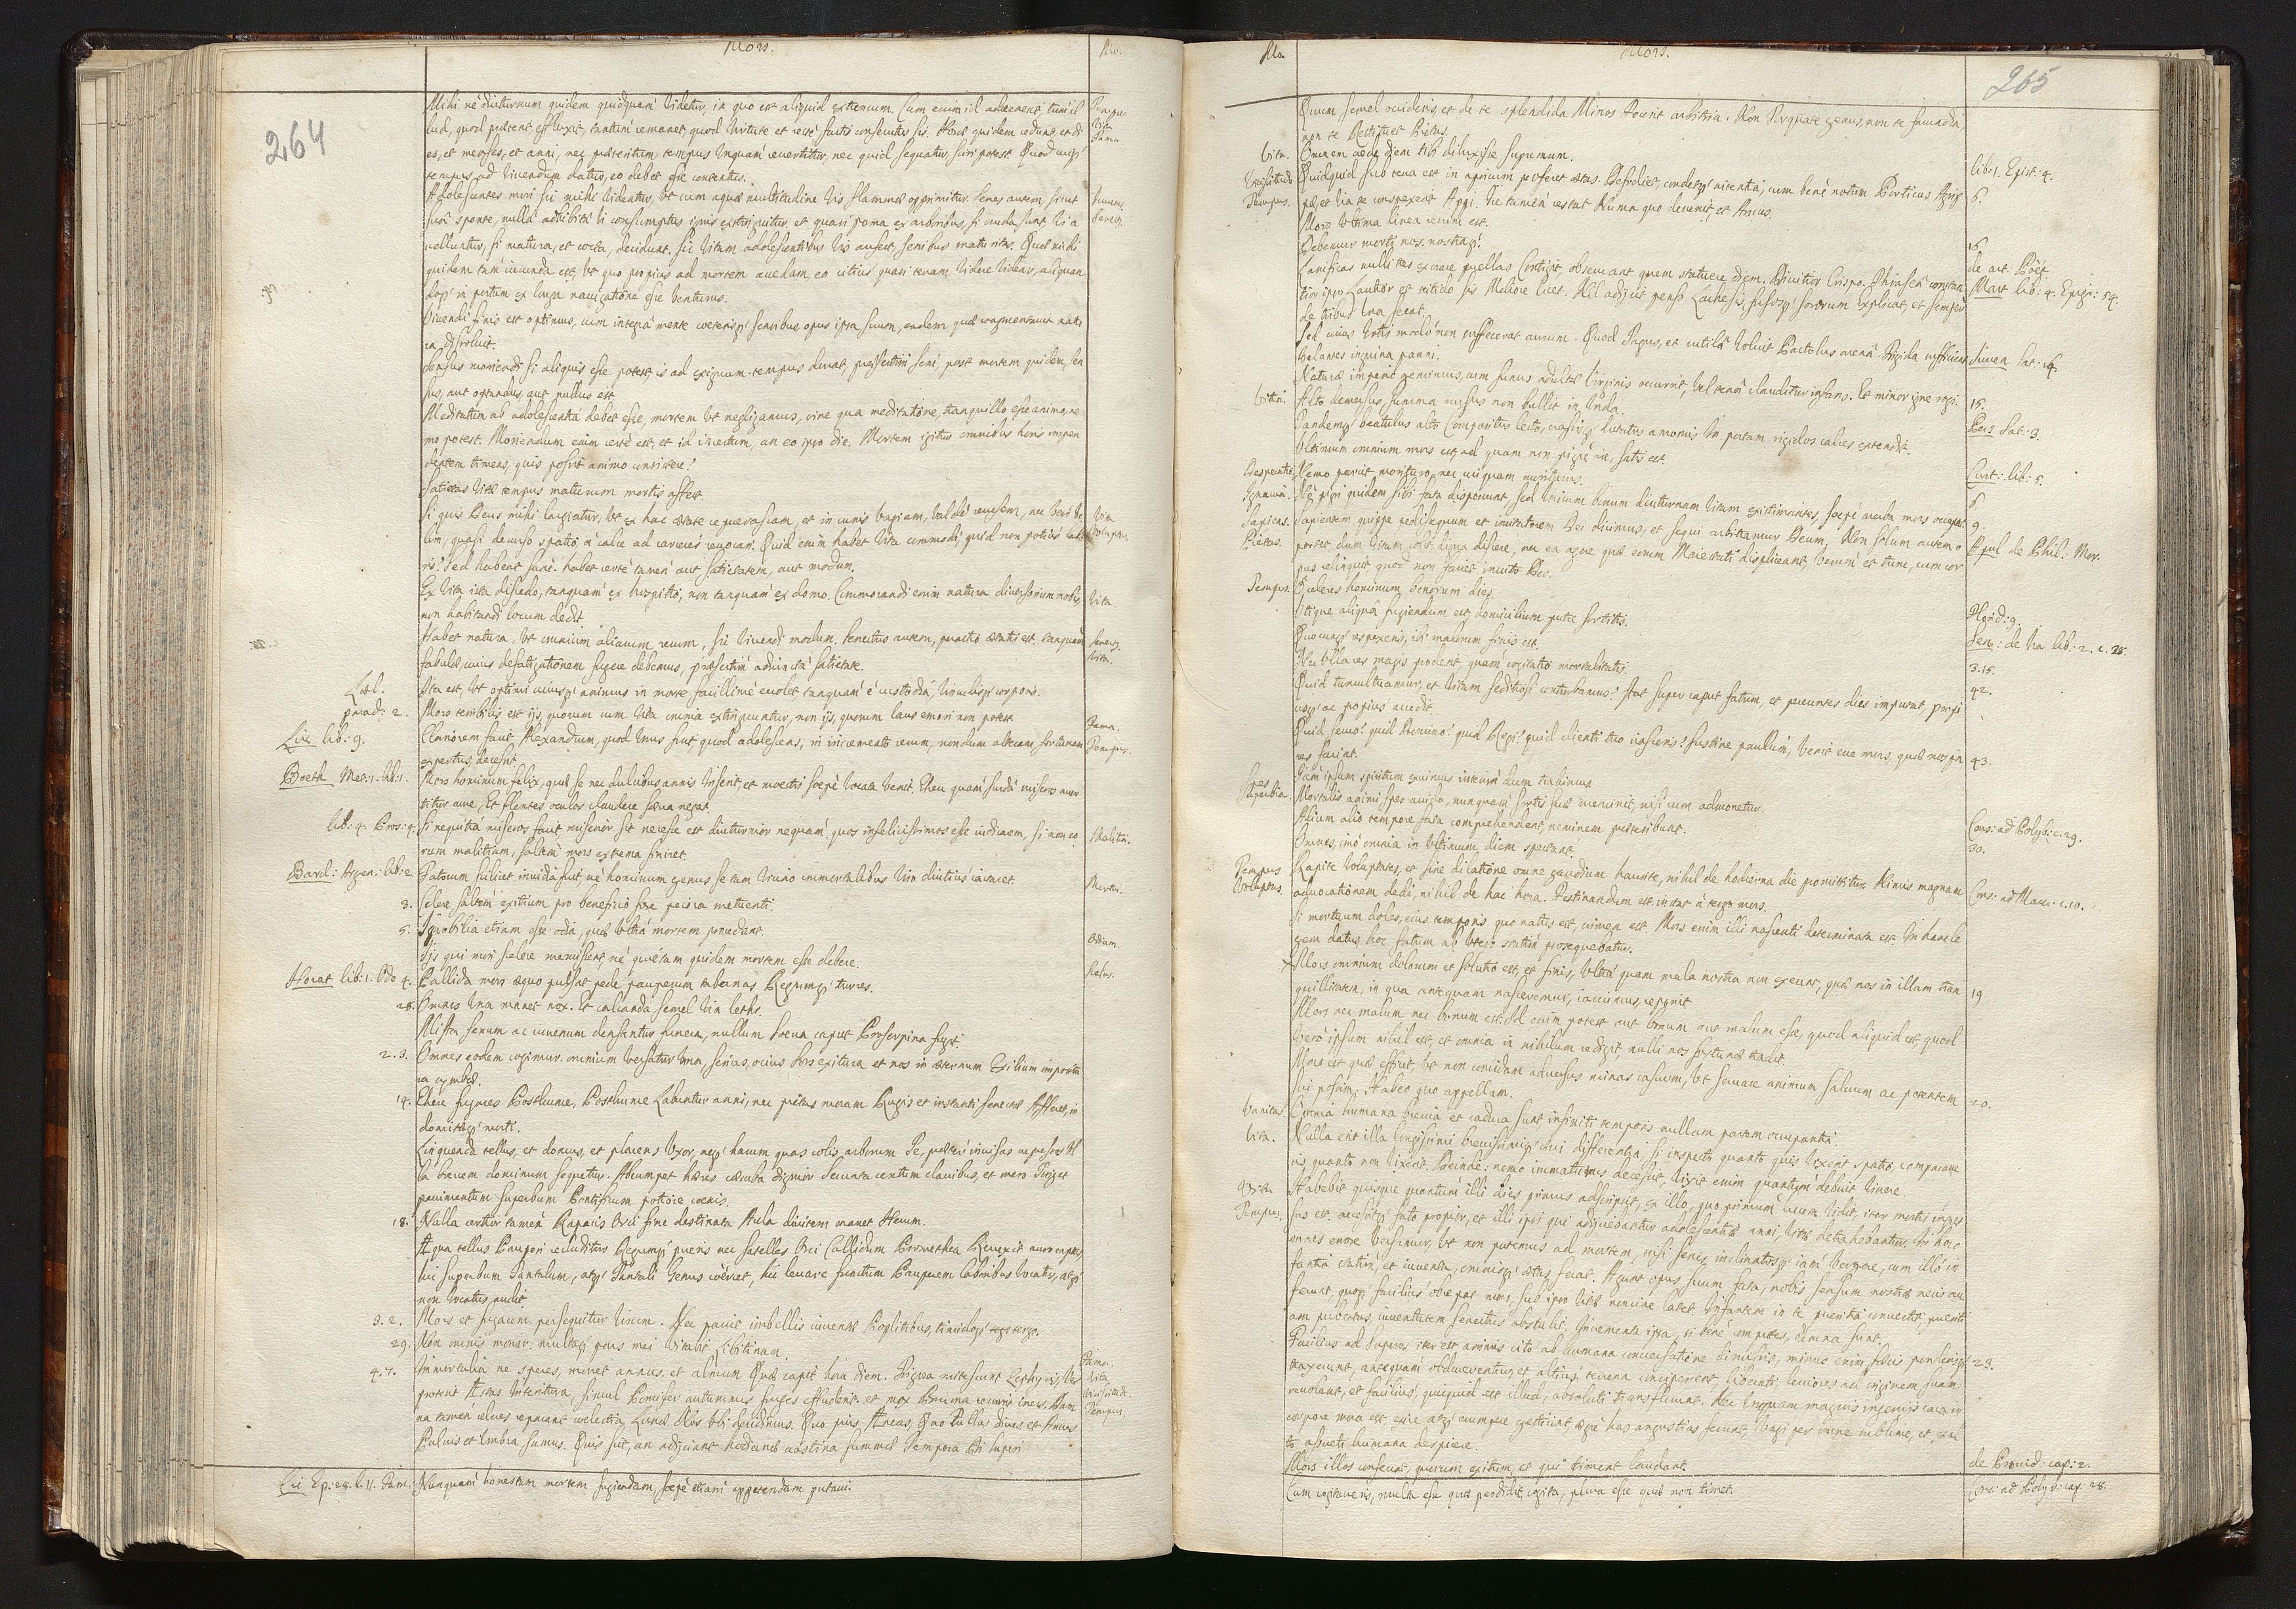 Mors.
Mo.
264
Mihi ne diuturnum quidem quidquam videtur, in quo est aliquid extremum. Cum enim id advenerit, tum il
Tempus.
lud, quod praeterit effluxit, tantum remanet, quod virtute et recte factis consecutus sis. Horae quidem cedunt, et di
Vita
Fama
es, et menses, et anni, nec praeteritum tempus unquam revertitur, nec quid sequatur, sciri potest. Quod cuiq;
tempus ad vivendum datur, eo debet esse contentus.
Adolescentes mori sic mihi videntur, ut cum aquae multitudine vis flammae opprimitur. Senes autem, sicut
sua sponte, nulla adhibita vi consumptus ignis extinguitur, et quasi poma ex arboribus, si cruda sunt, vi a
velluntur, si matura, et cocta, decidunt, sic vitam adolescentibus vis aufert, senibus maturitas. Quae mihi
quidem tam iucunda est, ut quo propius ad mortem accedam, eo citius quasi terram videre videar, aliquan
doq; in portum ex longa navigatione esse venturus.
Vivendi finis est optimus, cum integra mente ceterisq; sensibus opus ipsa suum, eadem quae coagmentavit natu
ra dissolvit.
Sensus moriendi si aliquis esse potest, is ad exiguum tempus durat, praesertim seni, post mortem quidem, sen
sus, aut optandus, aut nullus est.
Meditatum ab adolescentia debet esse, mortem ut negligamus, sine qua meditatione, tranquillo esse animo ne
mo potest. Moriendum enim certe est, et id incertum, an eo ipso die. Mortem igitur omnibus horis impen
dentem timens, quis possit animo consistere?
Satietas vitae tempus maturum mortis affert.
Si quis Deus mihi largiatur, ut ex hac aetate repuerascam, et in cunis vagiam, valde recusem, nec vero ve
Vita
lim, quasi decurso spatio a calce ad carceres revocari. Quid enim habet vita commodi, quid non potius labo
ris? Sed habeat sane. habet certe tamen aut satietatem, aut modum.
Ex vita ista discedo, tanquam ex hospitio, non tanquam ex domo. Commorandi enim natura diversorium nobis,
Vita.
non habitandi locum dedit.
Habet natura, ut omnium aliarum rerum, sic vivendi modum. Senectus autem, peractio aetatis est tanquam
Senect.
fabulae, cuius defatigationem fugere debemus, praesertim adiuncta satietate.
Vita.
Lael.
Ita est, ut optimi cuiusq; animus in morte facillime evolet tanquam e custodia, vinculisq; corporis.
parad: 2.
Mors terribilis est ijs, quorum cum vita omnia extinguuntur, non ijs, quorum laus emori non potest.
Fama.
Liv. lib: 9.
Clariorem facit Alexandrum, quod unus fuit quod adolescens, in incremento rerum, nondum alteram fortunam
Tempus.
expertus, decessit.
Boeth Met: 1. lib: 1.
Mors hominum felix, quae se nec dulcibus annis Inserit, et moestis saepe vocata venit. Eheu quam surda miseros aver
titur aure, Et flentes oculos claudere saeva negat.
lib: 4. Pros: 4.
Si nequitia miseros facit miserior sit necesse est diuturnior nequam, quos infelicissimos esse iudicarem, si non eo
Malitia.
rum malitiam, saltem mors extrema finiret.
Barcl: Argen: lib: 2
Fatorum scilicet invidia fuit ne hominum genus se tam vicino immortalibus vin diutius iactaret.
3.
Scelere saltem exitium pro beneficio fore peiora metuenti.
5.
Ignobilia etiam esse odia, quae ultra mortem procedant.
Odium.
Ijs qui mori scelere meruissent, ne quietam quidem mortem esse debere.
Scelus.
Horat lib: 1. Ode 4.
Pallida mors aequo pulsat pede pauperum tabernas Regumq; turres.
28.
Omnes una manet nox. Et calcanda semel via lethi.
Mista senum ac iuvenum densentur funera, nullum Saeva caput Proserpina fugit.
2. 3.
Omnes eodem cogimur. omnium Versatur urna, serius, ocius Sors exitura et nos in aeternum Exilium impositu
ra cymbae.
14.
Eheu fugaces Posthume, Posthume Labuntur anni, nec pietas moram Rugis et instanti senectae Afferet, in
domitaeq; morti.
Linquenda tellus, et domus, et placens Uxor, neq; harum quas colis arborum Te, praeter invisas cupressos Ul
la brevem dominum sequetur. Absumet haeres caecuba dignior Servata centum clavibus, et mero Tinget
pavimentum superbum Pontificum potiore coenis.
18.
Nulla certior tamen Rapacis Orci fine destinata Aula divitem manet Herum.
Aequa tellus Pauperi recluditur Regumq; pueris nec satelles Orci Callidum Promethea Revexit auro captus,
hic superbum Tantalum, atq; Tantali Genus coercet, hic levare functum Pauperem laboribus Vocatus, atq;
non vocatus audit.
3. 2.
Mors et fugacem persequitur virum. Nec parcit imbellis iuventae Poplitibus, timidoq; tergo.
29.
Non omnis moriar, multaq; pars mei Vitabit Libitinam.
4. 7.
Immortalia ne speres, monet annus, et almum Quae rapit hora diem. Frigora mitescunt Zephyris, Ver
Vita
proterit Aestas Interitura, simul Pomifer autumnus fruges effuderit, et mox Bruma recurrit iners. Dam
Vicissitudo.
na tamen celeres reparant coelestia Lunae Nos ubi decidimus. Quo pius Aeneas, Quo Tullus dives et Ancus
Tempus.
Pulvis et umbra sumus. Quis scit, an adijciant hodiernae crastina summae Tempora Di superi
Cic Ep: 28. l. 11. Fam:
Nunquam honestam mortem fugiendam, saepe etiam appetendam putavi.
Mo.
Mors.
265
Quum semel occideris, et de te splendida Minos Fecerit arbitria. Non Torquate genus, non te facundia,
non te Restituet Pietas.
Vita.
Omnem crede diem tibi diluxisse supremum.
lib: 1. Epist: 4.
Vicissitudo
Quidquid sub terra est in apricum proferet aetas. Defodiet, condetq; nitentia, cum bene notum Porticus Agrip
6.
Tempus.
pae, et via te conspexerit Appi. Ire tamen restat Numa quo devenit, et Ancus.
Mors ultima linea rerum est.
16.
Debemur morti nos, nostraq;.
de art: Poet
Lanificas nulli tres exorare puellas Contigit, observant quem statuere diem. Divitior Crispo, Thrasea constan
Mart lib: 4. Epigr: 54.
tior ipso Lautior et nitido sis Meliore licet. Nil adijcit penso Lachesis, fusosq; sororum Explicat, et semper
de tribus una secat.
Sed cuius votis modo non suffecerat aurum. Quod Tagus, et rutila volvit Pactolus arena. Frigida sufficient
Juven Sat: 14.
Velantes inguina panni.
Naturae imperio gemimus, cum funus adultae Virginis occurrit, vel terra clauditur infans. Et minor igne rogi.
15.
Vita.
Alto demersus, summa rursus non bullit in unda.
Pers Sat: 3.
Tandemq; beatulus alto Compositus lecto, crassisq; lutatus amomis, In portam rigidos calces extendit.
Ultimum omnium mors est, ad quam non pigre ire, satis est.
Curt: lib: 5.
Desperatio.
Nemo parcit morituro, nec cuiquam moriturus.
Ignavia.
Sapiens.
Sapientem, quippe pedisequum et imitatorem Dei dicimus, et sequi arbitramur Deum. Non solum autem o
Apul de Phil: Mor.
Pietas.
portet, dum vitam colit, digna dicere, nec ea agere quae eorum Maiestati displiceant, verum et tunc, cum cor
pus relinquit, quod non faciet invito Deo.
Tempus
Celeres hominum bonorum dies.
Utique aliqua fugiendum est, domicilium putre sortitis.
Quocunq; respexeris, ibi malorum finis est.
Nec ulla res magis proderit, quam cogitatio mortalitatis.
Sen: de Ira lib: 2. c. 28.
3. 15.
Quid tumultuamur, et vitam seditiosi conturbamus? Stat super caput fatum, et pereuntes dies imputat, propi
42.
usq; ac propius accedit.
Quid servo? quid Domino? quid Regi? quid clienti tuo irasceris? Sustine paullum, venit ecce mors, quae nos pa
43.
res faciat.
Iam ipsum spiritum exuimus interim dum trahimus.
Spes
Superbia.
Mortalis animi spes avida, nunquam sortis suae meminit, nisi cum admonetur.
Alium alio tempore fata comprehendent, neminem praeteribunt.
Cons: ad Polyb: c. 29.
Omnes, imo omnia in ultimum diem spectant.
30.
Tempus
Rapite voluptates, et sine dilatione omne gaudium haurite, nihil de hodierna die promittitur. Nimis magnam
Cons: ad Marc: c. 10.
Voluptas.
advocationem dedi, nihil de hac hora. Festinandum est, instat a tergo mors.
Si mortuum doles, eius temporis quo natus est, crimen est. Mors enim illi nascenti determinata est. In hanc le
gem datus, hoc fatum ab utero statim prosequebatur.
Mors omnium dolorum et solutio est, et finis, ultra quam mala nostra non exeunt, quae nos in illam tran
19
quillitatem, in qua antequam nasceremur, iacuimus, reponit.
Mors nec malum nec bonum est. Id enim potest aut bonum aut malum esse, quod aliquid est, quod
vero ipsum nihil est, et omnia in nihilum redigit, nulli nos fortunae tradit.
Mors est quae efficit, ut non concidam adversus minas casuum, ut servare animum salvum ac potentem
20.
sui possim. Habeo quo appellam.
Vanitas.
Omnia humana brevia et caduca sunt infiniti temporis nullam partem occupantia.
Vita.
Nulla erit illa longissimi brevissimiq; aevi differentia, si inspecto quanto quis vixerit spatio, comparave
ris quanto non vixerit. Deinde: nemo immaturus decessit, vixit enim quantum debuit vivere.
Vita
Habebit quisque quantum illi dies primus adscripsit, ex illo, quo primum lucem vidit, iter mortis ingres
Tempus.
sus est, accessitq; fato propior, et illi ipsi qui adijciebantur adolescentiae anni, vitae detrahebantur. In hoc
omnes errore versamur, ut non putemus ad mortem, nisi senes inclinatosq; iam vergere, cum illo in
fantia statim, et iuventa, omnisq; aetas ferat. Agunt opus suum fata, nobis sensum nostrae necis au
ferunt, quoq; facilius obrepat mors, sub ipso vitae nomine latet. Infantem in se pueritia convertit, pueriti
am pubertas, iuventutem senectus abstulit, Incrementa ipsa, si bene computes, damna sunt.
Facilius ad superos iter est animis cito ab humana conversatione dimissis, minus enim faecis ponderisq;
23.
traxerunt, antequam obducerentur, et altius terrena conciperent, liberati, leviores ad originem suam
revolant, et facilius, quicquid est illud, absoluti transfluunt. Nec unquam magnis ingenijs cara in
corpore mora est, exire atq; erumpere gestiunt, aegre has angustias ferunt, vagi per omne sublime, et ex al
to assueti humana despicere.
Mors illos consecrat, quorum exitum, et qui timent laudant.
de Provid: cap: 2.
Cum cogitaveris, multa esse quae perdidit, cogita, plura esse quae non timet.
Cons: ad Polyb: cap: 28.